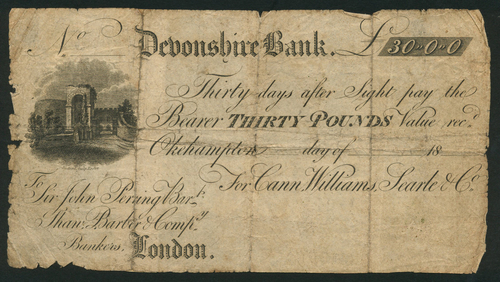 No Devonshire Bank. £30"0"0
Thirty days after Sight pay the
Bearer THIRTY POUNDS Value rec.d
Okehampton day of 18
For Cann Williams, Searle & Co.
To Sir John Perring Bar.t
Shaw, Barber & Comp.y
Bankers. London.